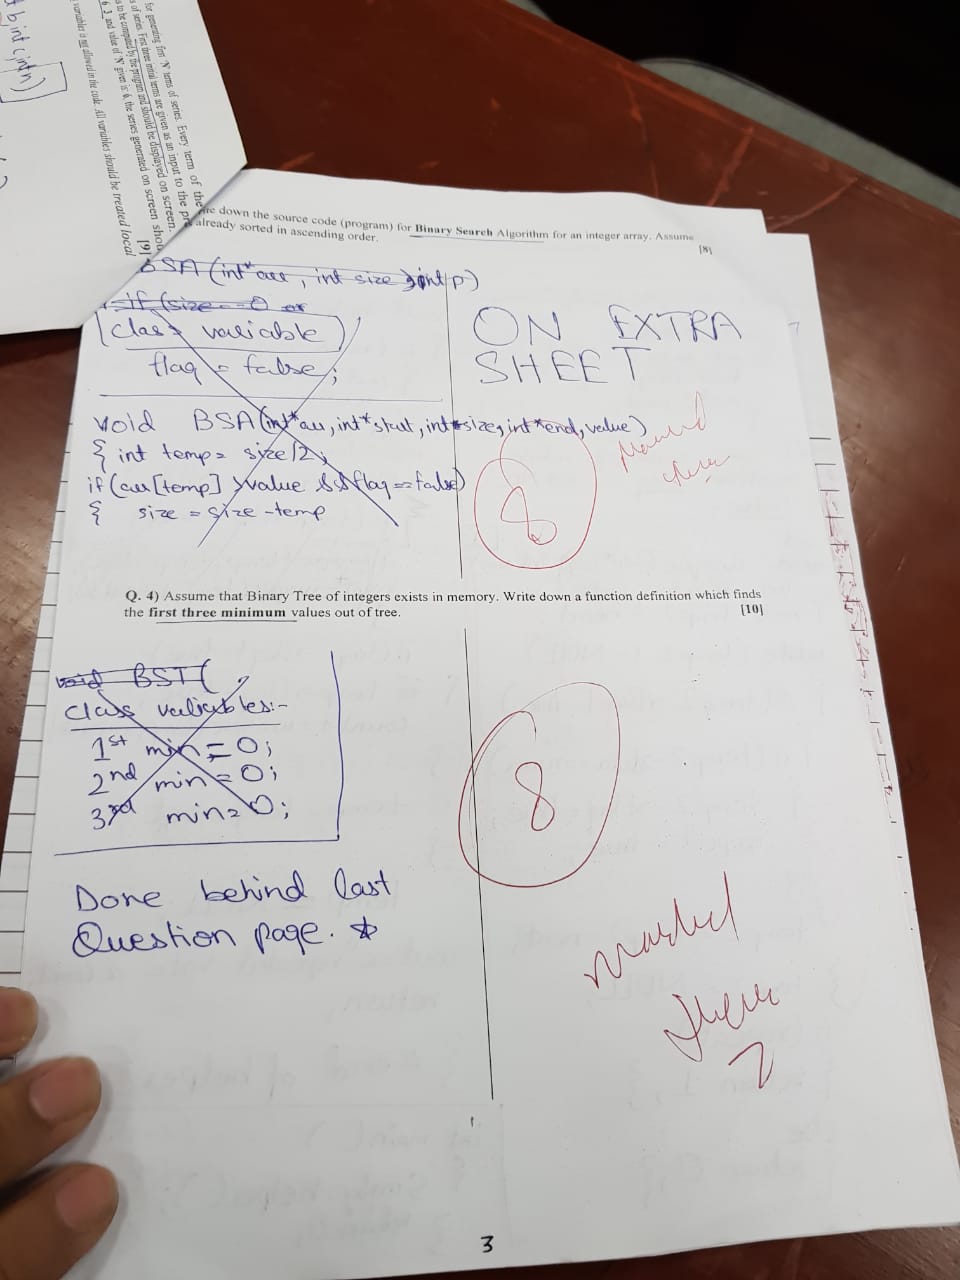 b, int c, int n)
for generating first 'N' terms of series. Every term of the
of series. First three initial terms are given as an input to the
to be computed by the program and should be displayed on screen.
and value of 'N' given is 6, the series generated on screen
[9]
variables is not allowed in the code. All variables should be treated local
down the source code (program) for Binary Search Algorithm for an integer array. Assume
already sorted in ascending order.
[8]
BSA (int* arr, int size, int p)
if (size == 0 or
class variable
flag = false;
ON EXTRA
SHEET
void BSA(int* arr, int* start, int size, int *end, value)
{ int temp = size/2;
if (arr[temp] > value && flag == false)
{ size = size - temp
8
Marked
there
Q. 4) Assume that Binary Tree of integers exists in memory. Write down a function definition which finds
the first three minimum values out of tree.
[10]
void BST(
class variables:-
1st min = 0;
2nd min = 0;
3rd min = 0;
8
Done behind last
Question page. ☆
marked
there
3